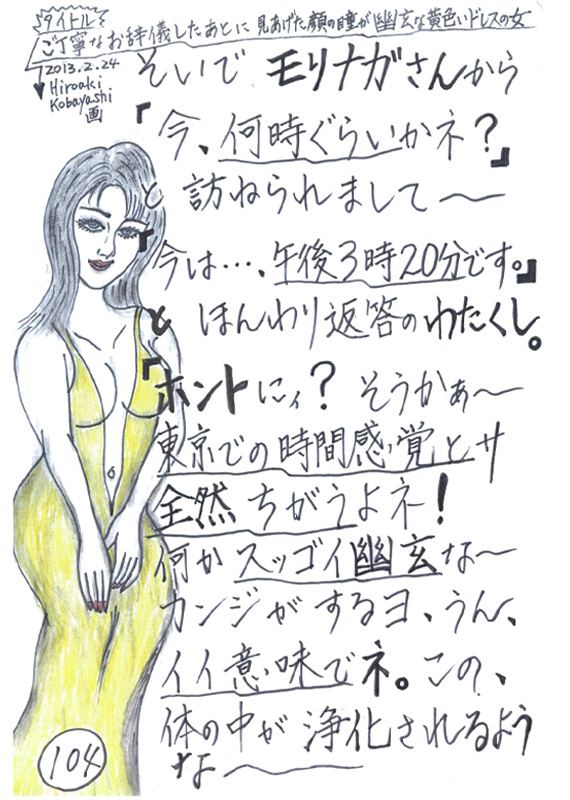 タイトル
ご丁寧なお辞儀したあとに見あげた顔の瞳が幽玄な黄色いドレスの女
2013.2.24
Hiroaki
Kobayashi
画
そいで モリナガさんから
『今、何時ぐらいかネ?』
と 訪ねられまして〜
『今は…、午後3時20分です。』
と ほんわり返答のわたくし。
『ホントにィ? そうかぁ〜
東京での時間感覚とサ
全然 ちがうよネ!
何かスッゴイ幽玄な〜
カンジがするヨ、うん、
イイ意味でネ。この、
体の中が浄化されるよう
な〜
104